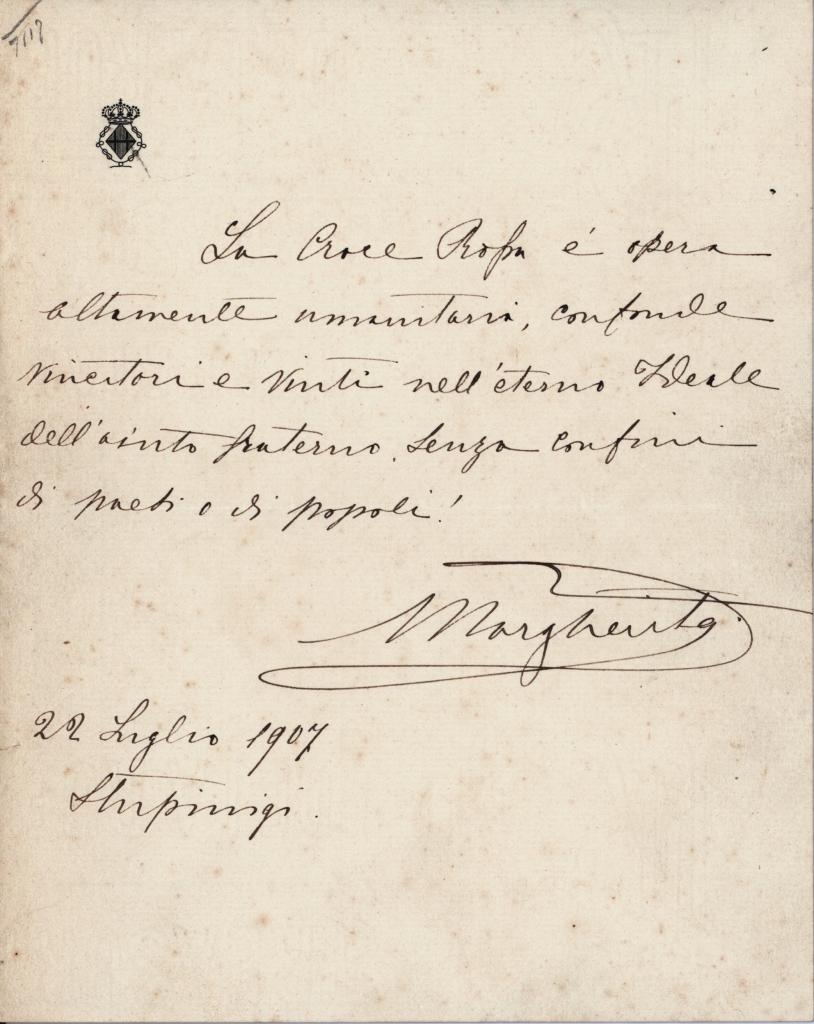 La Croce Rossa é opera
altamente umanitaria, confonde
vincitori e vinti nell'eterno Ideale
dell'aiuto fraterno, senza confini
di paesi o di popoli!
Margherita
22 Luglio 1907
Stupinigi.